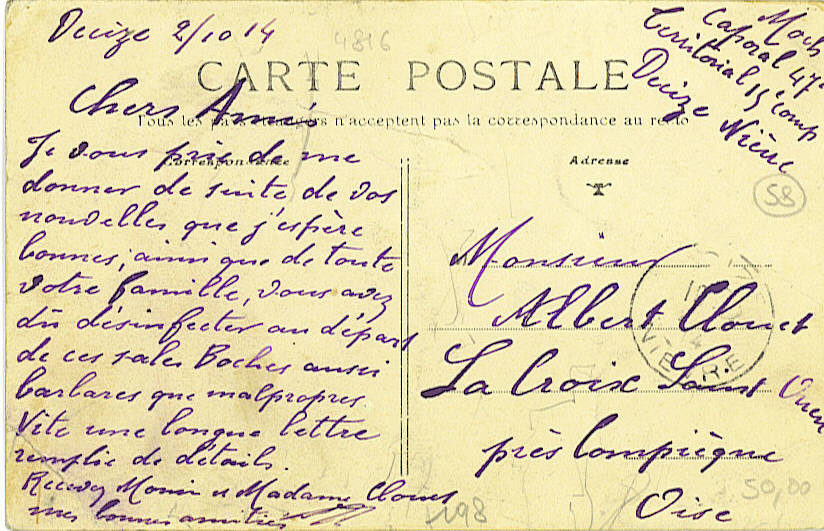 Decize 2/10 14
4816
Moch
Caporal 47e
Territorial 15 Comp
Decize Nièvre
CARTE POSTALE
Tous les pays étrangers n'acceptent pas la correspondance au recto
Correspondance
Adresse
58
Chers Amis
Je vous prie de me
donner de suite de vos
nouvelles que j'espère
bonnes, ainsi que de toute
votre famille, vous avez
dû désinfecter au départ
de ces sales Boches aussi
barbares que malpropres.
Vite une longue lettre
remplie de détails.
Recevez Monsieur et Madame Clouet
mes bonnes amitiés
Monsieur
Albert Clouet
La Croix Saint Ouen
près Compiègne
Oise
NIEVRE
198
50,00